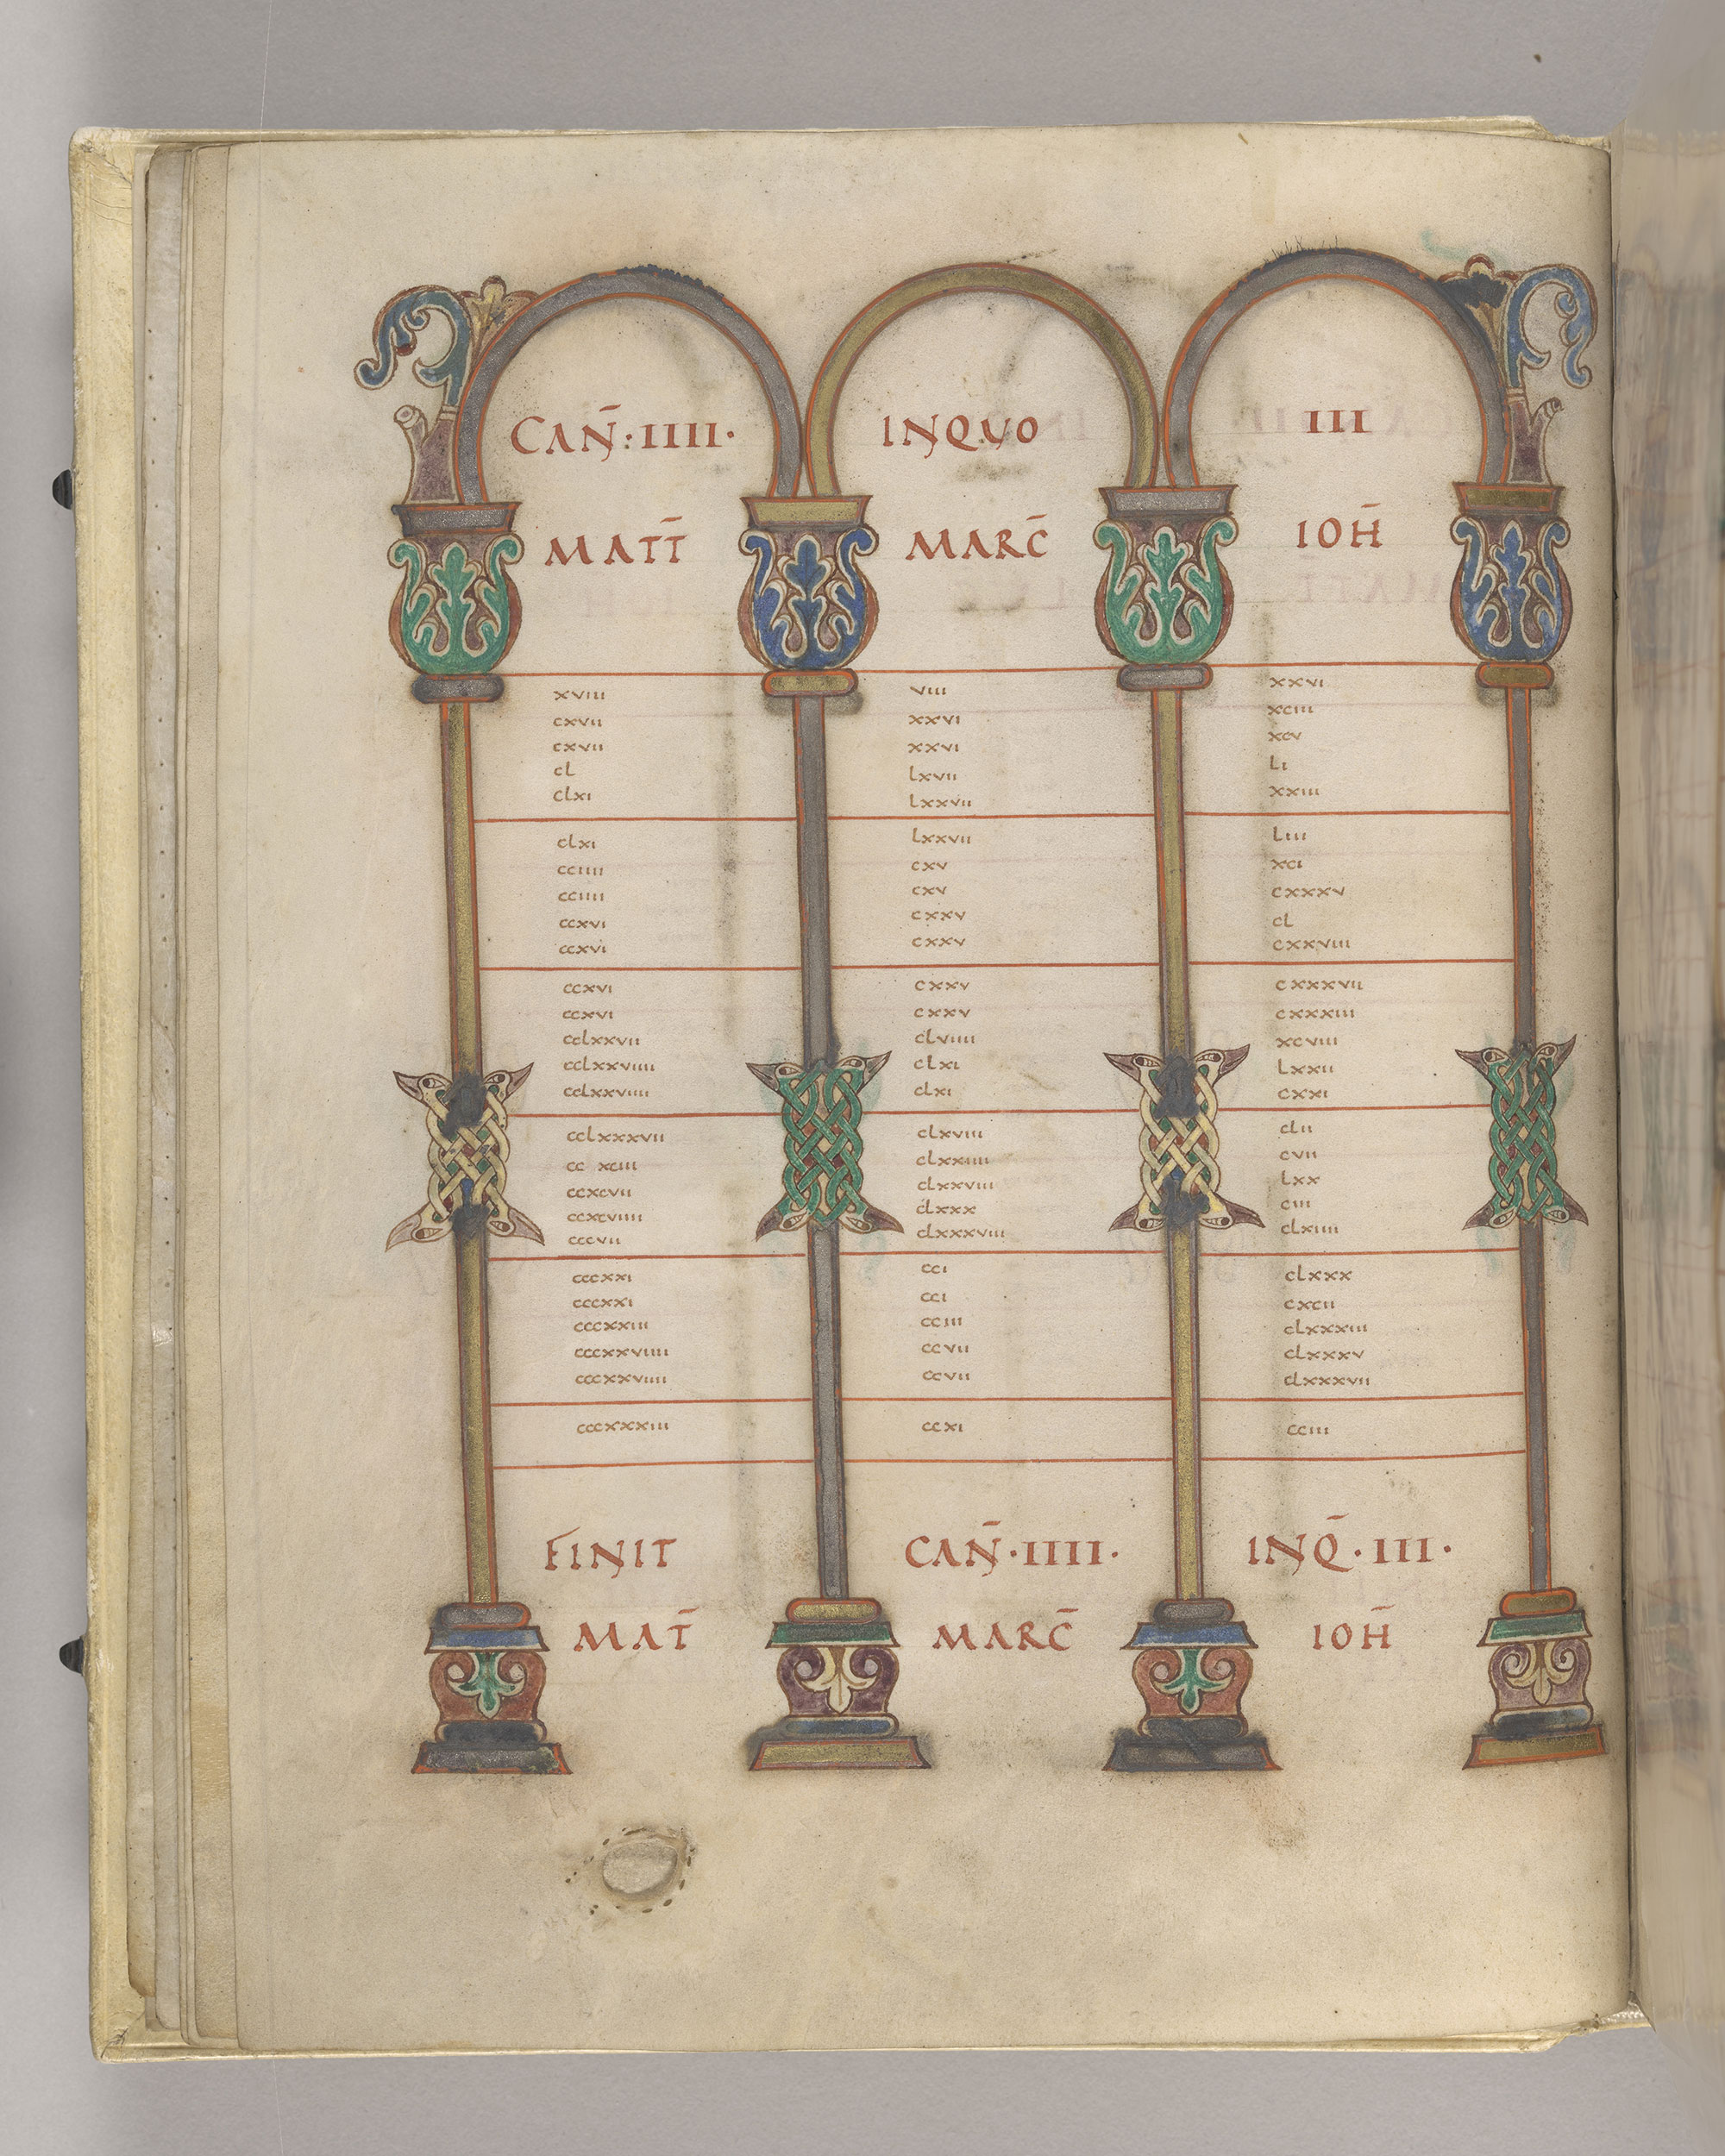 CAÑ:IIII· INQUO III
MATT̄ MARC̄ IOH̄
xviii viii xxvi
cxvii xxvi xciii
cxvii xxvi xcv
cl lxvii li
clxi lxxvii xxiii
clxi lxxvii liii
cciiii cxv xci
cciiii cxv cxxxv
ccxvi cxxv cl
ccxvi cxxv cxxviii
ccxvi cxxv cxxxvii
ccxvi cxxv cxxxiii
cclxxvii clviiii xcviii
cclxxviiii clxi lxxii
cclxxviiii clxi cxxi
cclxxxvii clxviii clii
cc xciii clxxiiii cvii
ccxcvii clxxviii lxx
ccxcviiii clxxx ciii
cccvii clxxxviii clxiiii
cccxxi cci clxxx
cccxxi cci cxcii
cccxxiii cciii clxxxiii
cccxxviiii ccvii clxxxv
cccxxviiii ccvii clxxxvii
cccxxxiii ccxi cciii
FINIT CAÑ·IIII· INQ̄·III·
MAT̄ MARC̄ IOH̄